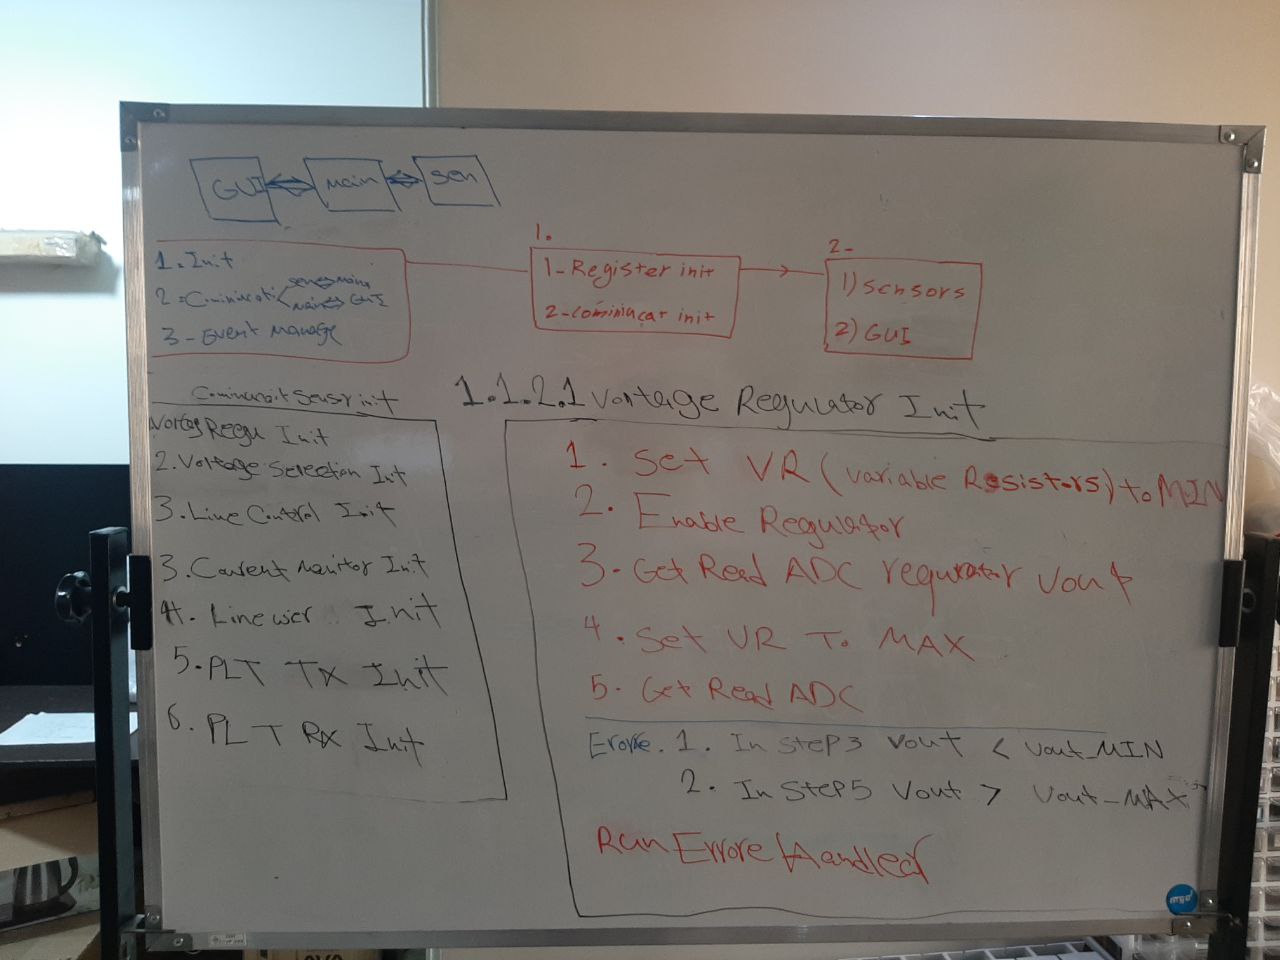 GUI Main Sen
1. Init
2 = Cominicati sens main
main GUI
3 - Event Manage
1.
1- Register init
2- cominucat init
2-
1) sensors
2) GUI
Cominucait Sensor init
Voltag Reegu Init
2. Voltage Selection Int
3. Line Control Init
3. Current Monitor Init
4. Line wer Init
5. PLT TX Init
6. PLT RX Init
1.1.2.1 Voltage Regulator Init
1. Set VR (variable Resistors) to MIN
2. Enable Regulator
3. Get Read ADC regulator Vout
4. Set VR To MAX
5. Get Read ADC
Erore. 1. In step3 Vout < Vout_MIN
2. In Step5 Vout > Vout_MAX
Run Errore Handler